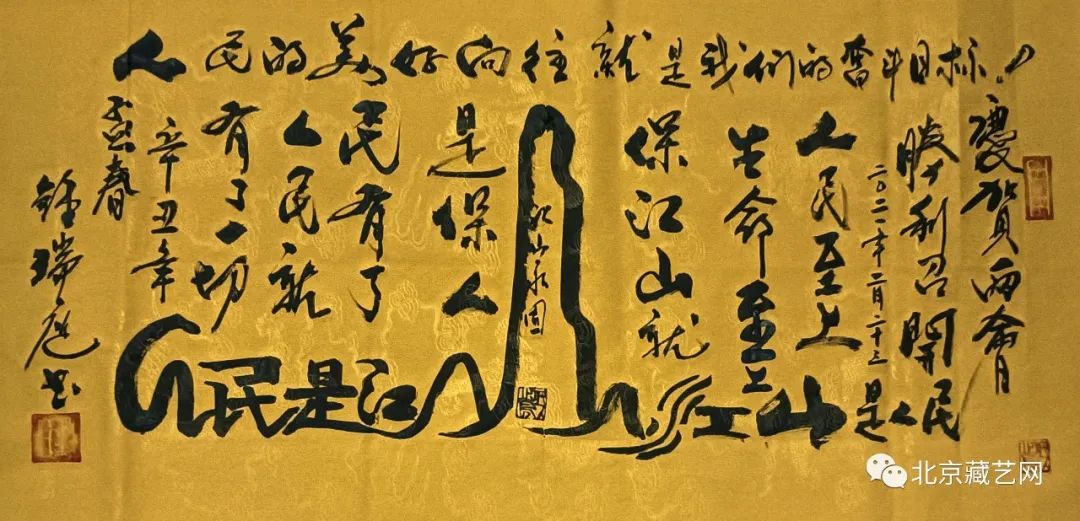 人民的美好向往就是我们的奋斗目标!
慶賀两會
勝利召開
二〇二一年二月二十三
人民至上
生命至上
保江山就
江山永固
是保人
民有了
人民就
有了一切
辛丑年
孟春
鍾瑞庭书
人民是江山
江山是人民
北京藏艺网